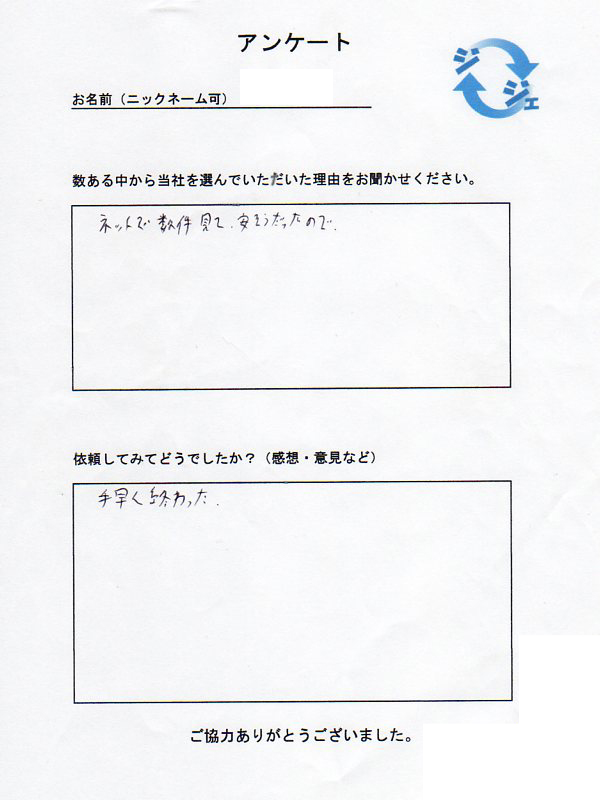 アンケート
ジジェ
お名前（ニックネーム可）
数ある中から当社を選んでいただいた理由をお聞かせください。
ネットで数件見て、安そうだったので.
依頼してみてどうでしたか？（感想・意見など）
手早く終わった.
ご協力ありがとうございました。